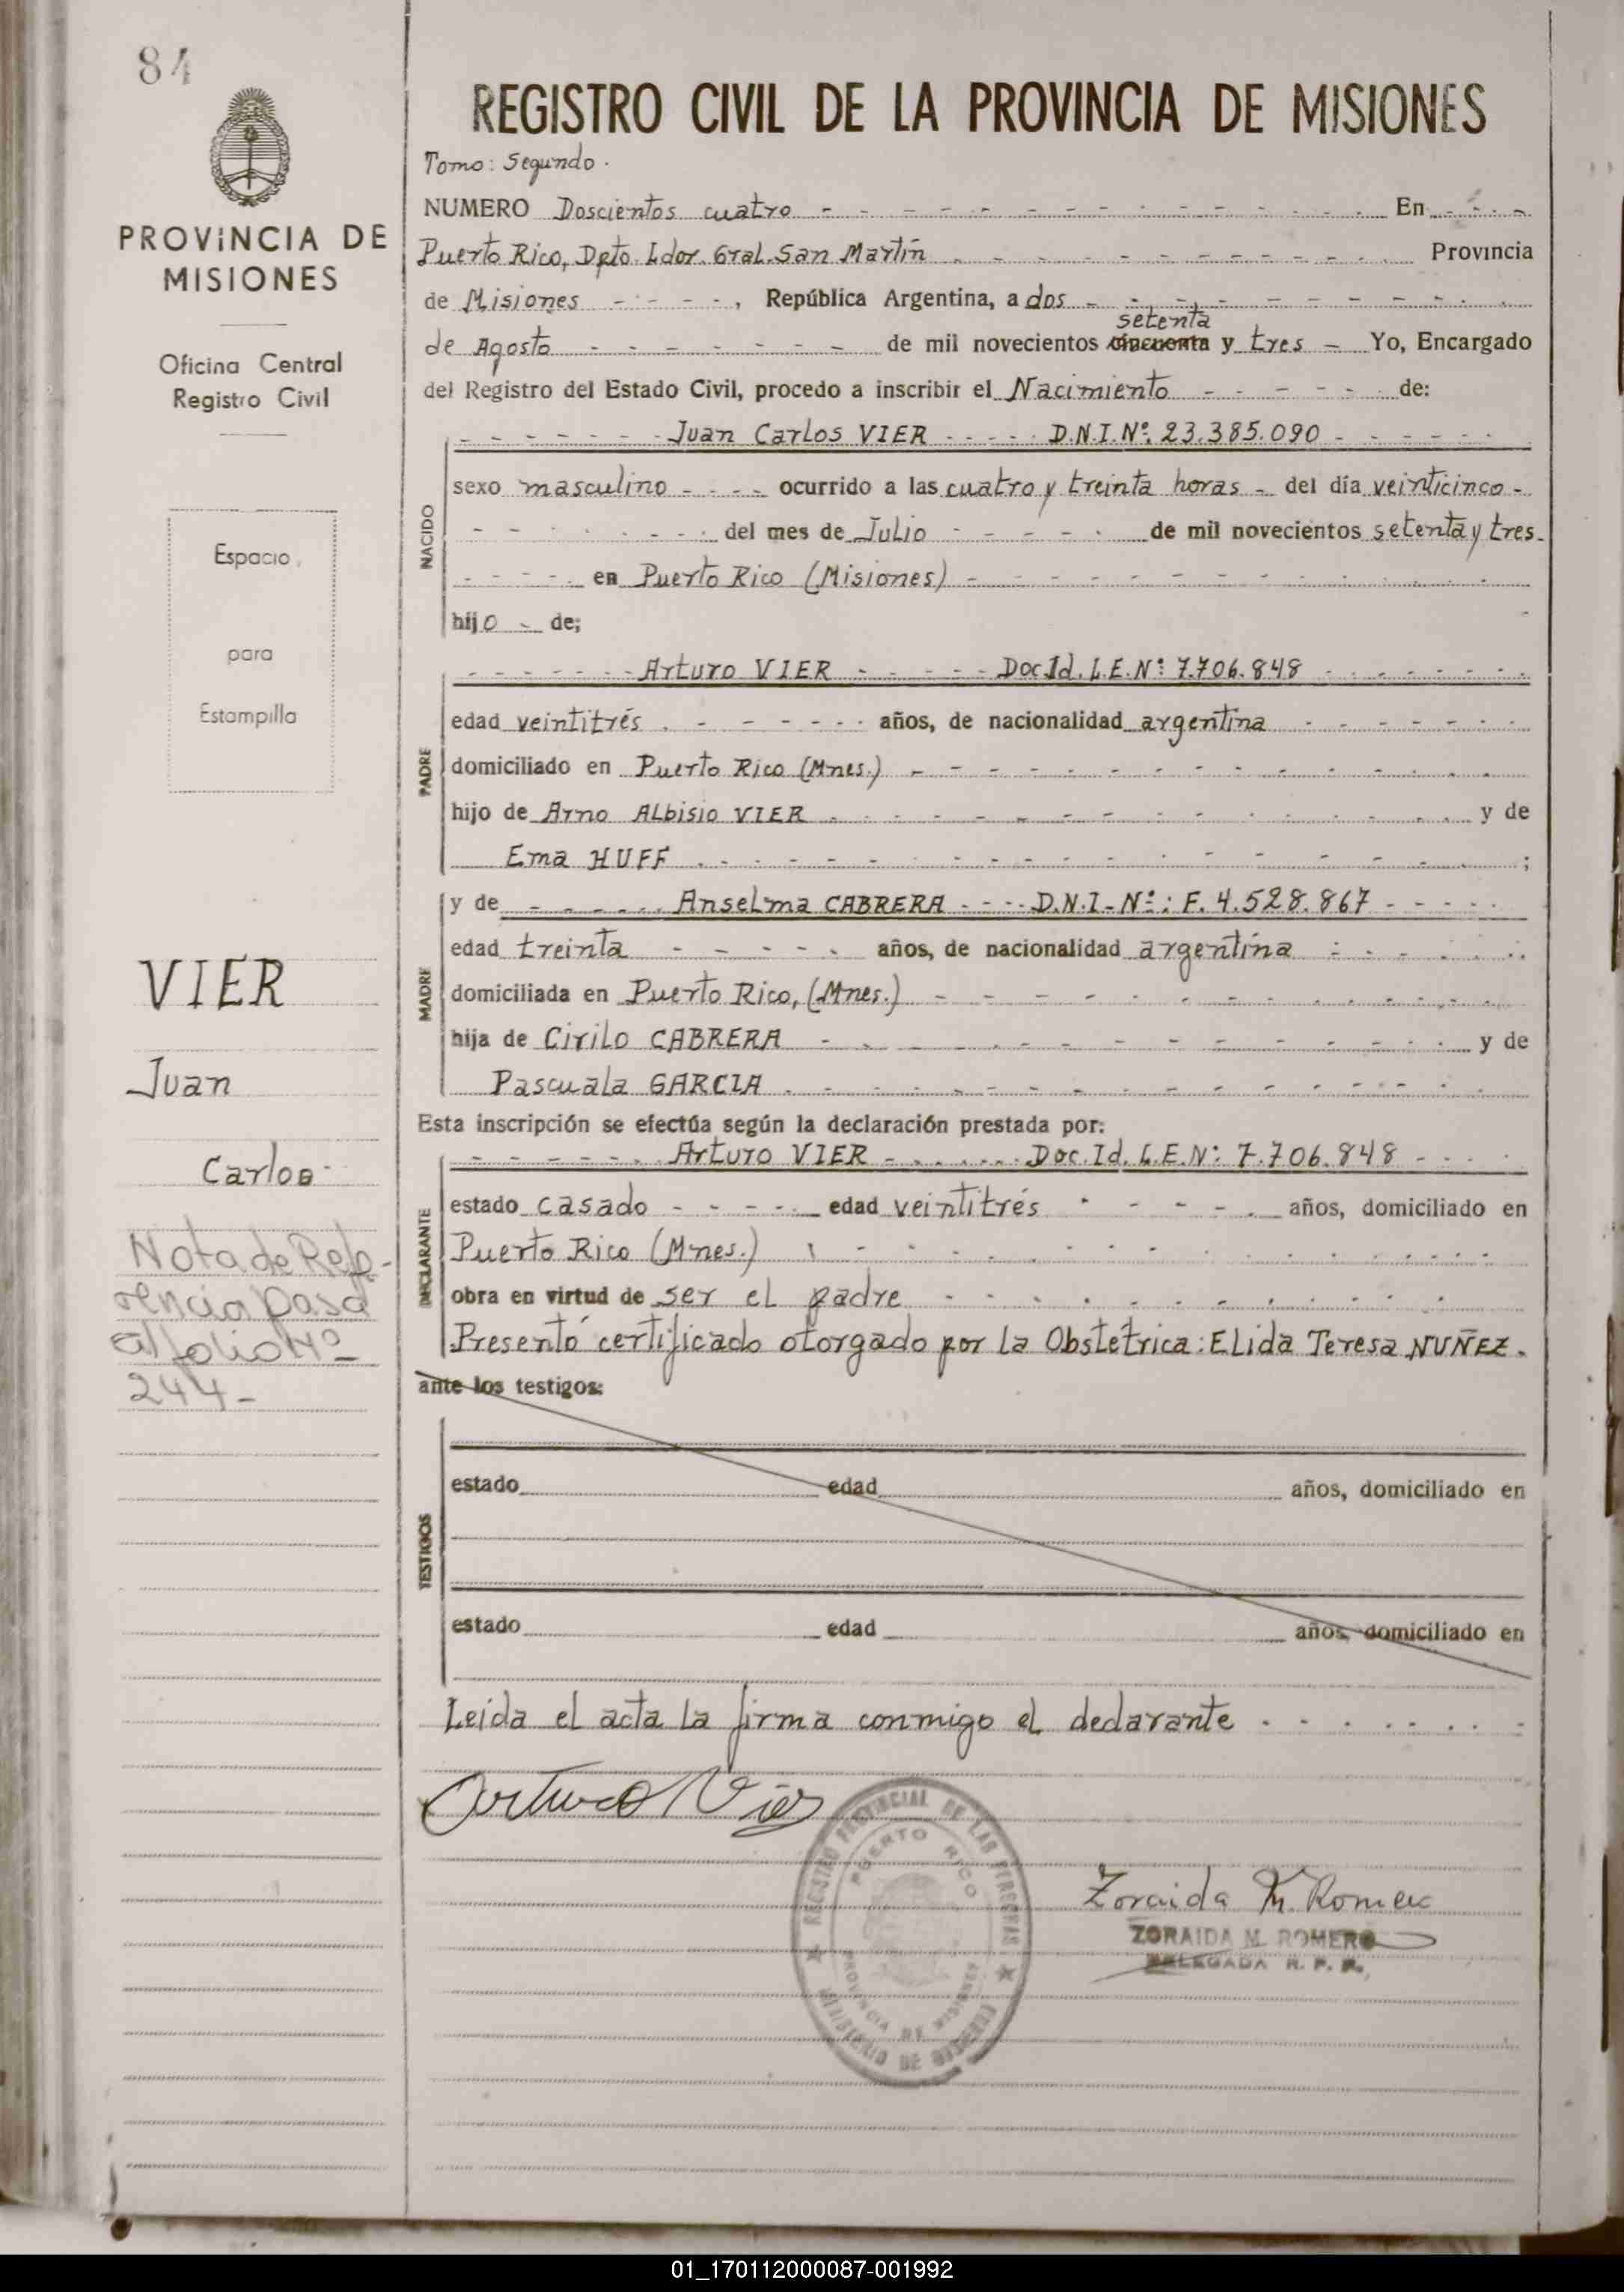 84
PROVINCIA DE
MISIONES
Oficina Central
Registro Civil
Espacio
para
Estampilla
VIER
Juan
Carlos
Nota de Refe-
rencia pasa
al folio Nº
244-
REGISTRO CIVIL DE LA PROVINCIA DE MISIONES
Tomo: Segundo.
NUMERO Doscientos cuatro En
Puerto Rico, Dpto. Ldor. Gral. San Martín Provincia
de Misiones, República Argentina, a dos
setenta
de Agosto de mil novecientos cincuenta y tres Yo, Encargado
del Registro del Estado Civil, procedo a inscribir el Nacimiento de:
Juan Carlos VIER D.N.I. Nº. 23.385.090
NACIDO
sexo masculino ocurrido a las cuatro y treinta horas del día veinticinco
del mes de Julio de mil novecientos setenta y tres.
en Puerto Rico (Misiones)
hijo de;
Arturo VIER Doc Id. L.E. Nº: 7.706.848
PADRE
edad veintitrés años, de nacionalidad argentina
domiciliado en Puerto Rico (Mnes.)
hijo de Arno ALbisio VIER y de
Ema HUFF ;
y de Anselma CABRERA D.N.I. Nº: F. 4.528.867
MADRE
edad treinta años, de nacionalidad argentina
domiciliada en Puerto Rico, (Mnes.)
hija de Cirilo CABRERA y de
Pascuala GARCIA
Esta inscripción se efectúa según la declaración prestada por:
Arturo VIER Doc. Id. L.E. Nº: 7.706.848
DECLARANTE
estado casado edad veintitrés años, domiciliado en
Puerto Rico (Mnes.)
obra en virtud de ser el padre
Presentó certificado otorgado por la Obstetrica: Elida Teresa NUÑEZ.
ante los testigos:
TESTIGOS
estado edad años, domiciliado en
estado edad años, domiciliado en
Leida el acta la firma conmigo el declarante
Arturo Vier
REGISTRO PROVINCIAL DE LAS PERSONAS
PUERTO RICO
PROVINCIA DE MISIONES
MINISTERIO DE GOBIERNO
Zoraida M. Romero
ZORAIDA M. ROMERO
DELEGADA R. P. P.
01_170112000087-001992